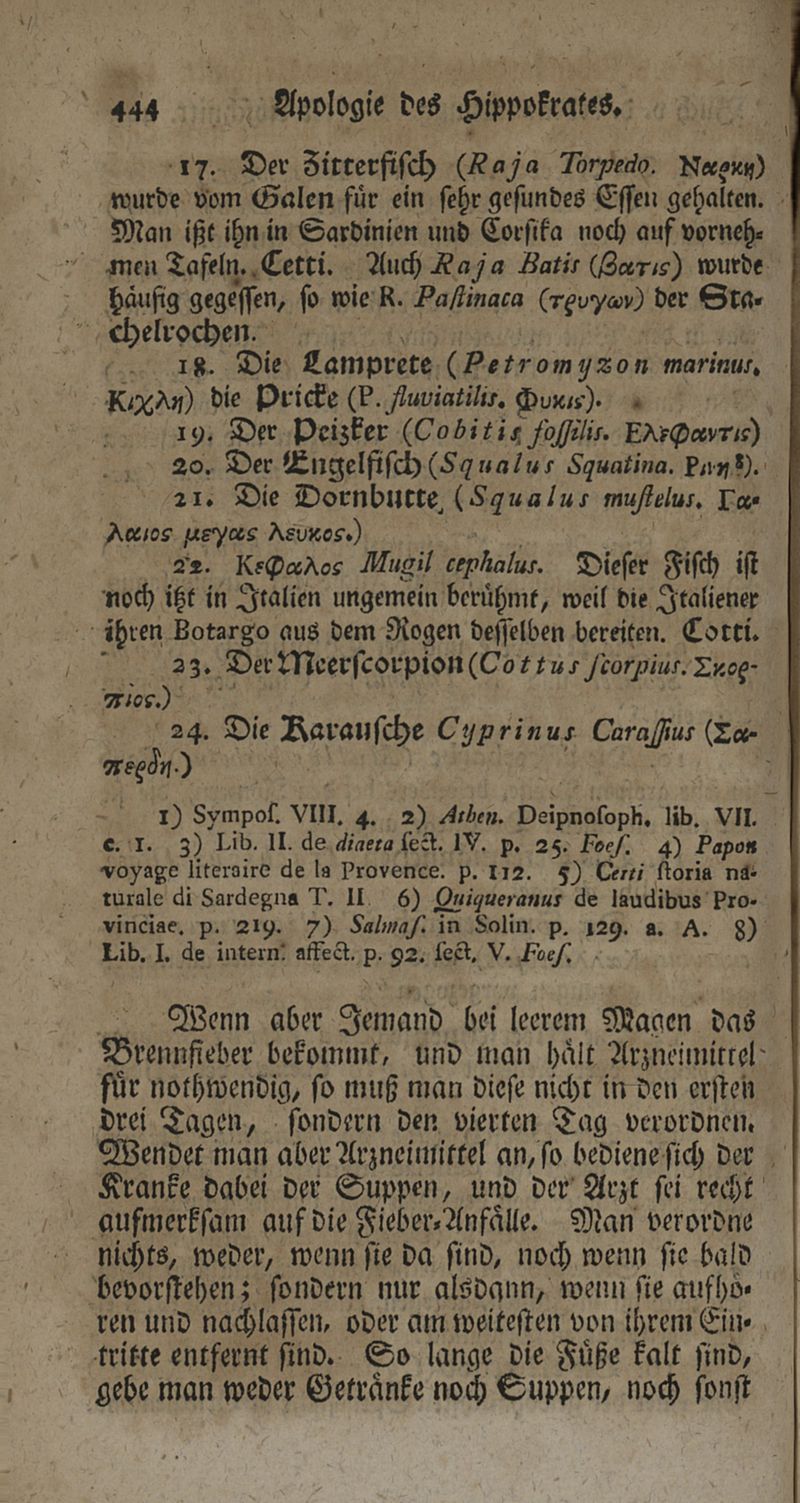 444 Apologie des Hippokrates.
17. Der Zitterfiſch (Raja Torpedo. Ναρκη)
wurde vom Galen fuͤr ein ſehr geſundes Eſſen gehalten.
Man ißt ihn in Sardinien und Corſika noch auf vorneh-
men Tafeln. Cetti. Auch Raja Batis (Βατις) wurde
haͤufig gegeſſen, ſo wie R. Paſtinaca (τρυγων) der Sta-
chelrochen.
18. Die Lamprete (Petromyzon marinus,
Κιχλη) die Pricke (P. fluviatilis. Φυκις).
19. Der Peizker (Cobitis foſſilis. Ελεφαντις)
20. Der Engelfiſch (Squalus Squatina. Ρινη⁸).
21. Die Dornbutte, (Squalus muſtelus. Γα-
λαιος μεγας λευκος.)
22. Κεφαλος Mugil cephalus. Dieſer Fiſch iſt
noch itzt in Italien ungemein beruͤhmt, weil die Italiener
ihren Botargo aus dem Rogen deſſelben bereiten. Cotti.
23. Der Meerſcorpion (Cottus ſcorpius. Σκορ-
πιος.)
24. Die Karauſche Cyprinus Caraſſius (Σα-
περδη.)
1) Sympoſ. VIII. 4. 2) Athen. Deipnoſoph. lib. VII.
c. 1. 3) Lib. II. de diaeta ſect. IV. p. 25. Foeſ. 4) Papon
voyage literaire de la Provence. p. 112. 5) Cetti ſtoria na-
turale di Sardegna T. II. 6) Quiqueranus de laudibus Pro-
vinciae. p. 219. 7) Salmaſ. in Solin. p. 129. a. A. 8)
Lib. I. de intern. affect. p. 92. ſect. V. Foeſ.
Wenn aber Jemand bei leerem Magen das
Brennfieber bekommt, und man haͤlt Arzneimittel
fuͤr nothwendig, ſo muß man dieſe nicht in den erſten
drei Tagen, ſondern den vierten Tag verordnen.
Wendet man aber Arzneimittel an, ſo bediene ſich der
Kranke dabei der Suppen, und der Arzt ſei recht
aufmerkſam auf die Fieber-Anfaͤlle. Man verordne
nichts, weder, wenn ſie da ſind, noch wenn ſie bald
bevorſtehen; ſondern nur alsdann, wenn ſie aufhoͤ-
ren und nachlaſſen, oder am weiteſten von ihrem Ein-
tritte entfernt ſind. So lange die Fuͤße kalt ſind,
gebe man weder Getraͤnke noch Suppen, noch ſonſt